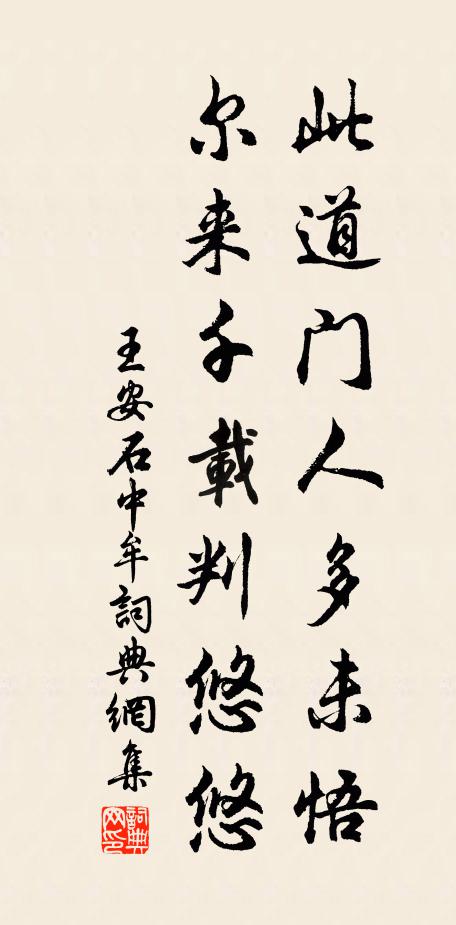 此道门人多未悟
尔来千載判悠悠
王安石中牟詞典網集
詞典网印